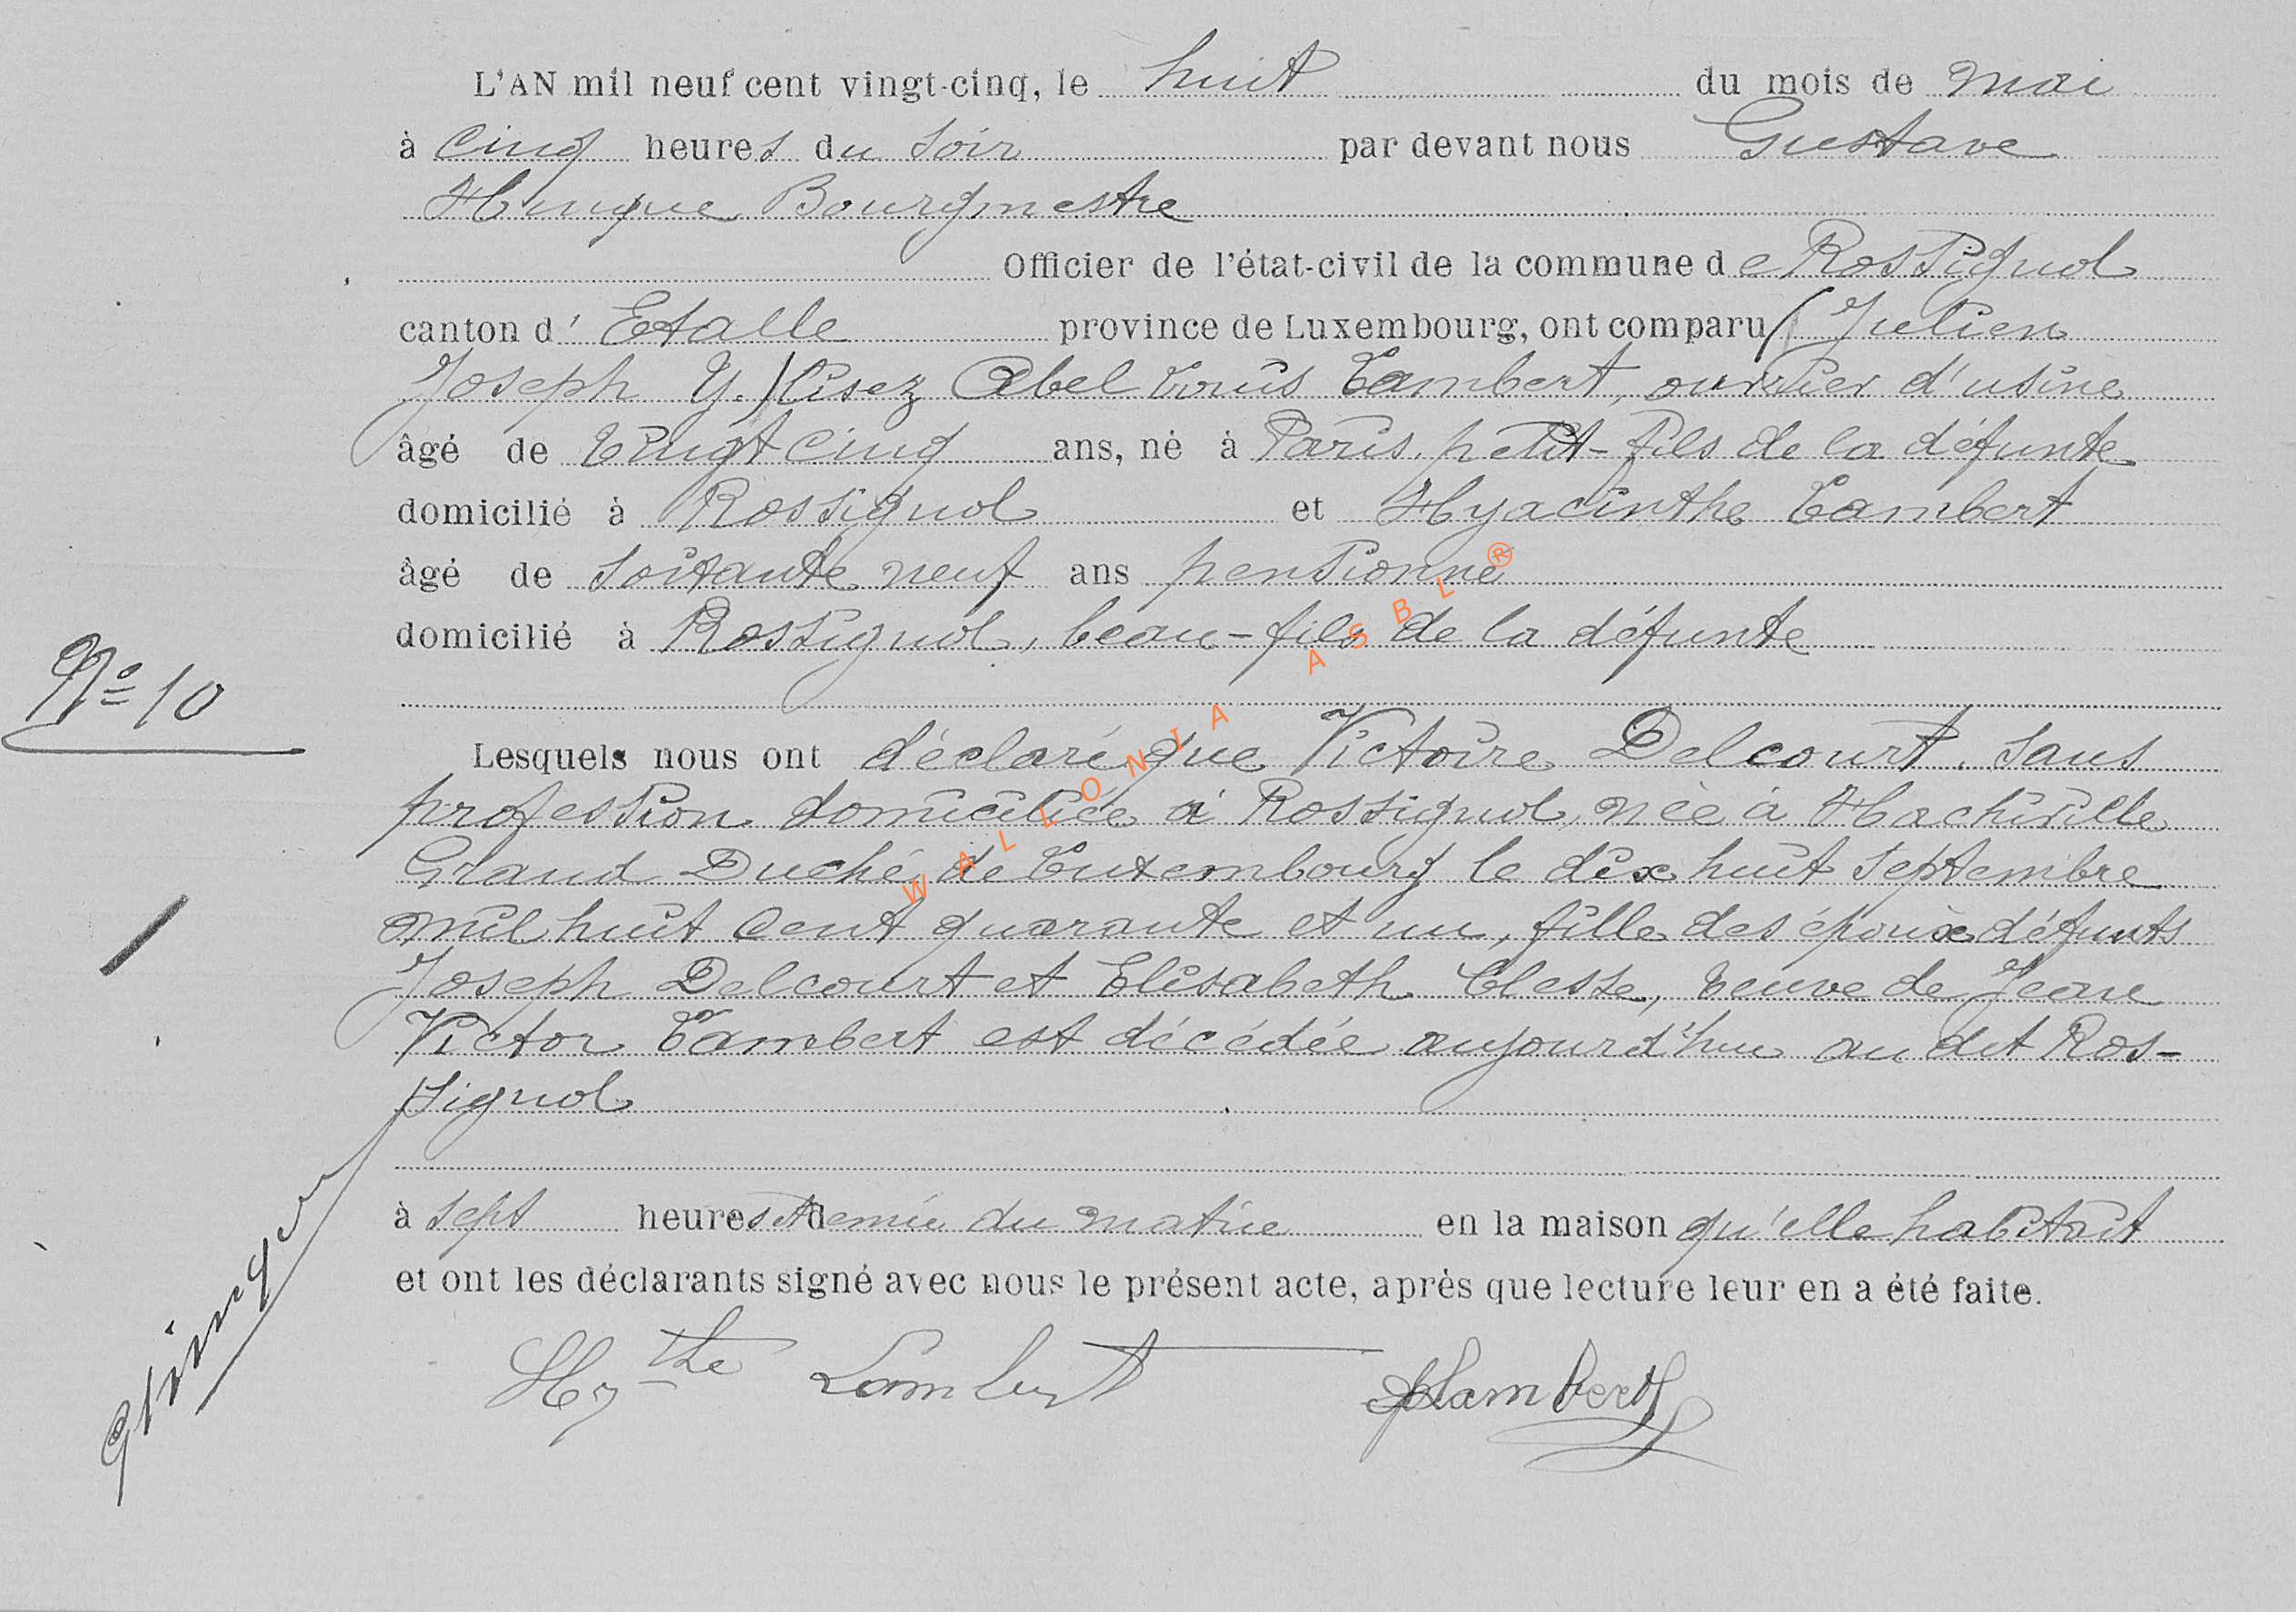 L'AN mil neuf cent vingt-cinq, le huit du mois de mai
à cinq heures du soir par devant nous Gustave
Hinque Bourgmestre
Officier de l'état-civil de la commune de Rossignol
canton d' Etalle province de Luxembourg, ont comparu (Julien
Joseph Y.) lisez Abel Louis Lambert, ouvrier d'usine
âgé de vingt cinq ans, né à Paris, petit-fils de la défunte
domicilié à Rossignol et Hyacinthe Lambert
âgé de soixante neuf ans pensionné
domicilié à Rossignol, beau-fils de la défunte
No 10
Lesquels nous ont déclaré que Victoire Delcourt, sans
profession domiciliée à Rossignol, née à Hachiville
Grand Duché de Luxembourg le dix huit septembre
mil huit cent quarante et un, fille des époux défunts
Joseph Delcourt et Elisabeth Clesse, veuve de Jean
Victor Lambert est décédée aujourd'hui au dit Ros-
signol
à sept heures et demie du matin en la maison qu'elle habitait
et ont les déclarants signé avec nous le présent acte, après que lecture leur en a été faite.
Hythe Lambert Lambert
WALLONIA ASBL®